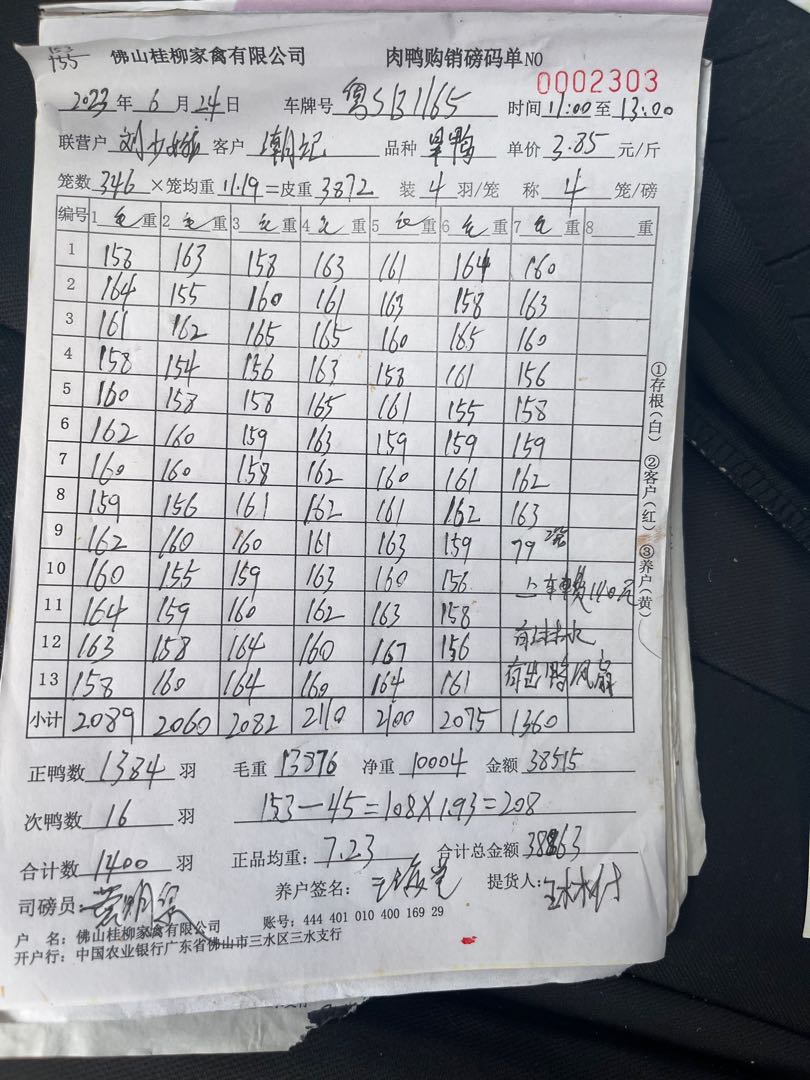 155
佛山桂柳家禽有限公司 肉鸭购销磅码单NO 0002303
2023年6月24日 车牌号 粤S1B1165 时间11:00至13:00
联营户 刘 客户 潮记 品种 旱鸭 单价 3.85 元/斤
笼数 346 ×笼均重 11.19 =皮重 3872 装 4 羽/笼 称 4 笼/磅
编号 1 毛 重 2 毛 重 3 毛 重 4 毛 重 5 毛 重 6 毛 重 7 毛 重 8 重
1 158 163 158 163 161 164 160
2 164 155 160 161 163 158 163
3 161 162 165 165 160 165 160
4 158 154 156 163 158 161 156
5 160 158 158 165 161 155 158
6 162 160 159 163 159 159 159
7 160 160 158 162 160 161 162
8 159 156 161 162 161 162 163
9 162 160 160 161 163 159 79 2笼
10 160 155 159 163 160 156 上车费140元
11 164 159 160 162 163 158
12 163 158 164 160 167 156 有淋水
13 158 160 164 160 164 161 有出鸭风扇
小计 2089 2060 2082 2110 2100 2075 1360
正鸭数 1384 羽 毛重 13876 净重 10004 金额 38515
次鸭数 16 羽 153-45=108×1.93=208
合计数 1400 羽 正品均重: 7.23 合计总金额 38863
司磅员: 养户签名: 提货人:
户 名: 佛山桂柳家禽有限公司 账号: 444 401 010 400 169 29
开户行: 中国农业银行广东省佛山市三水区三水支行
①存根(白) ②客户(红) ③养户(黄)